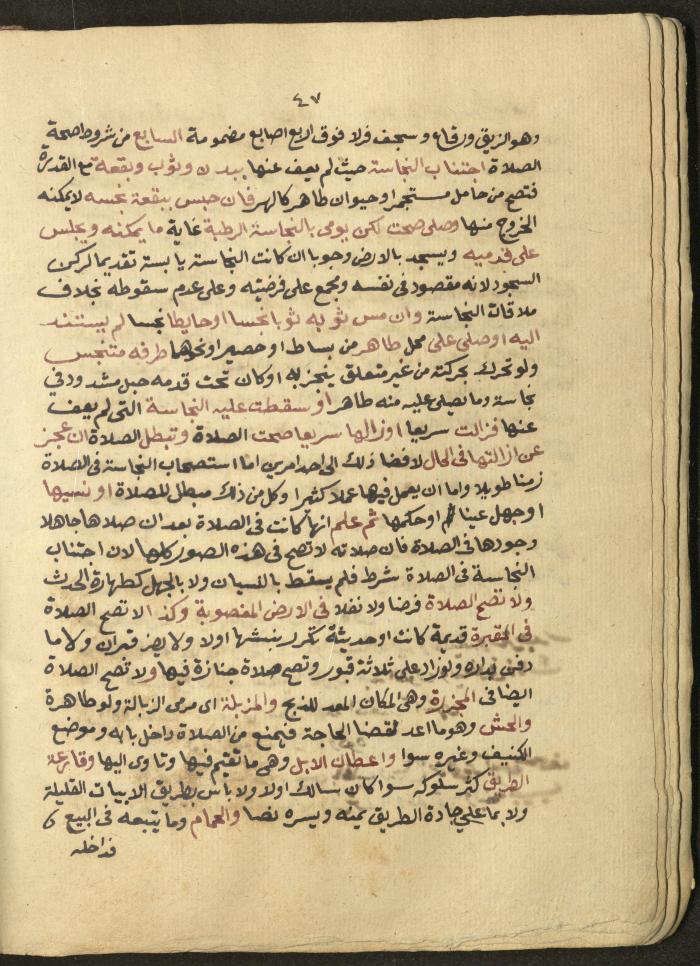 ٤٧
وهو الزيق ورقاع وسجف فرلا فوق اربع اصابع مضمومة السابع من شروط صحة
الصلاة اجتناب النجاسة حيث لم يعف عنها ببدن وثوب وبقعة مع القدرة
فتصح من حامل مستجمرا وحيوان طاهر كالهر فان حبس ببقعة نجسه لا يمكنه
الخروج منها وصلى صحت لكن يومي بالنجاسة الرطبة غاية ما يمكنه ويجلس
على قدميه ويسجد بالارض وجوبا ان كانت النجاسة يابسة تقديما لركن
السجود لانه مقصود في نفسه ومجمع على فرضيته وعلى عدم سقوطه بخلاف
ملاقاة النجاسة وان مس ثوبه ثوبا نجسا او حايطا نجسا لم يستند
اليه او صلى على محل طاهر من بساط او حصير او نحوهما طرفه متنجس
ولو تحرك بحركته من غير متعلق ينجر به او كان تحت قدمه حبل مشدود في
نجاسة وما يصلى عليه منه طاهر او سقطت عليه النجاسة التي لم يعف
عنها فزالت سريعا او زالها سريعا صحت الصلاة وتبطل الصلاة ان عجز
عن ازالتها في الحال لافضا ذلك الى احد امرين اما استصحاب النجاسة في الصلاة
زمنا طويلا واما ان يعمل فيها عملا كثيرا وكل من ذلك مبطل للصلاة او نسيها
او جهل عينا او حكمها ثم علم انها كانت في الصلاة بعد ان صلاها جاهلا
وجودها في الصلاة فان صلاته لا تصح في هذه الصور كلها لان اجتناب
النجاسة في الصلاة شرط فلم يسقط بالنسيان ولا بالجهل كطهارة الحدث
ولا تصح الصلاة فرضا ولا نفلا في الارض المغصوبة وكذا لا تصح الصلاة
في المقبرة قديمة كانت او حديثة تكرر نبشها اولا ولا يضر قبران ولا ما
دفن بداره ولو زاد على ثلاثة قبور وتصح صلاة جنازة فيها ولا تصح الصلاة
ايضا في المجزرة وهي المكان المعد للذبح والمزبلة اي مرمى الزبالة ولو طاهرة
والحش وهو ما اعد لقضا الحاجة فيمنع من الصلاة داخل بابه وموضع
الكنيف وغيره سوا واعطان الابل وهي ما تقيم فيها وتاوي اليها وقارعة
الطريق كثر سلوكه سوا كان بسالك اولا ولا باس بطريق الابيات القليلة
ولا بما على جادة الطريق يمنه ويسره نصا والحمام وما يتبعه في البيع
فداخله